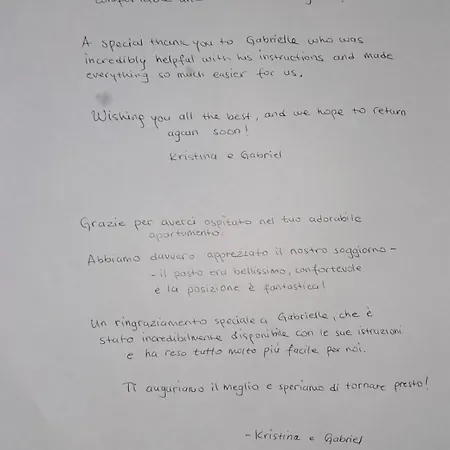 A special thank you to Gabrielle who was
incredibly helpful with his instructions and made
everything so much easier for us.
Wishing you all the best, and we hope to return
again soon!
Kristina e Gabriel
Grazie per averci ospitato nel tuo adorabile
apartumento.
Abbiamo davvero apprezzato il nostro soggiorno -
- il posto era bellissimo, confortevole
e la posizione è fantastica!
Un ringraziamento speciale a Gabrielle, che è
stato incredibilmente disponibile con le sue istruzioni
e ha reso tutto molto più facile per noi.
Ti auguriamo il meglio e speriamo di tornare presto!
- Kristina e Gabriel